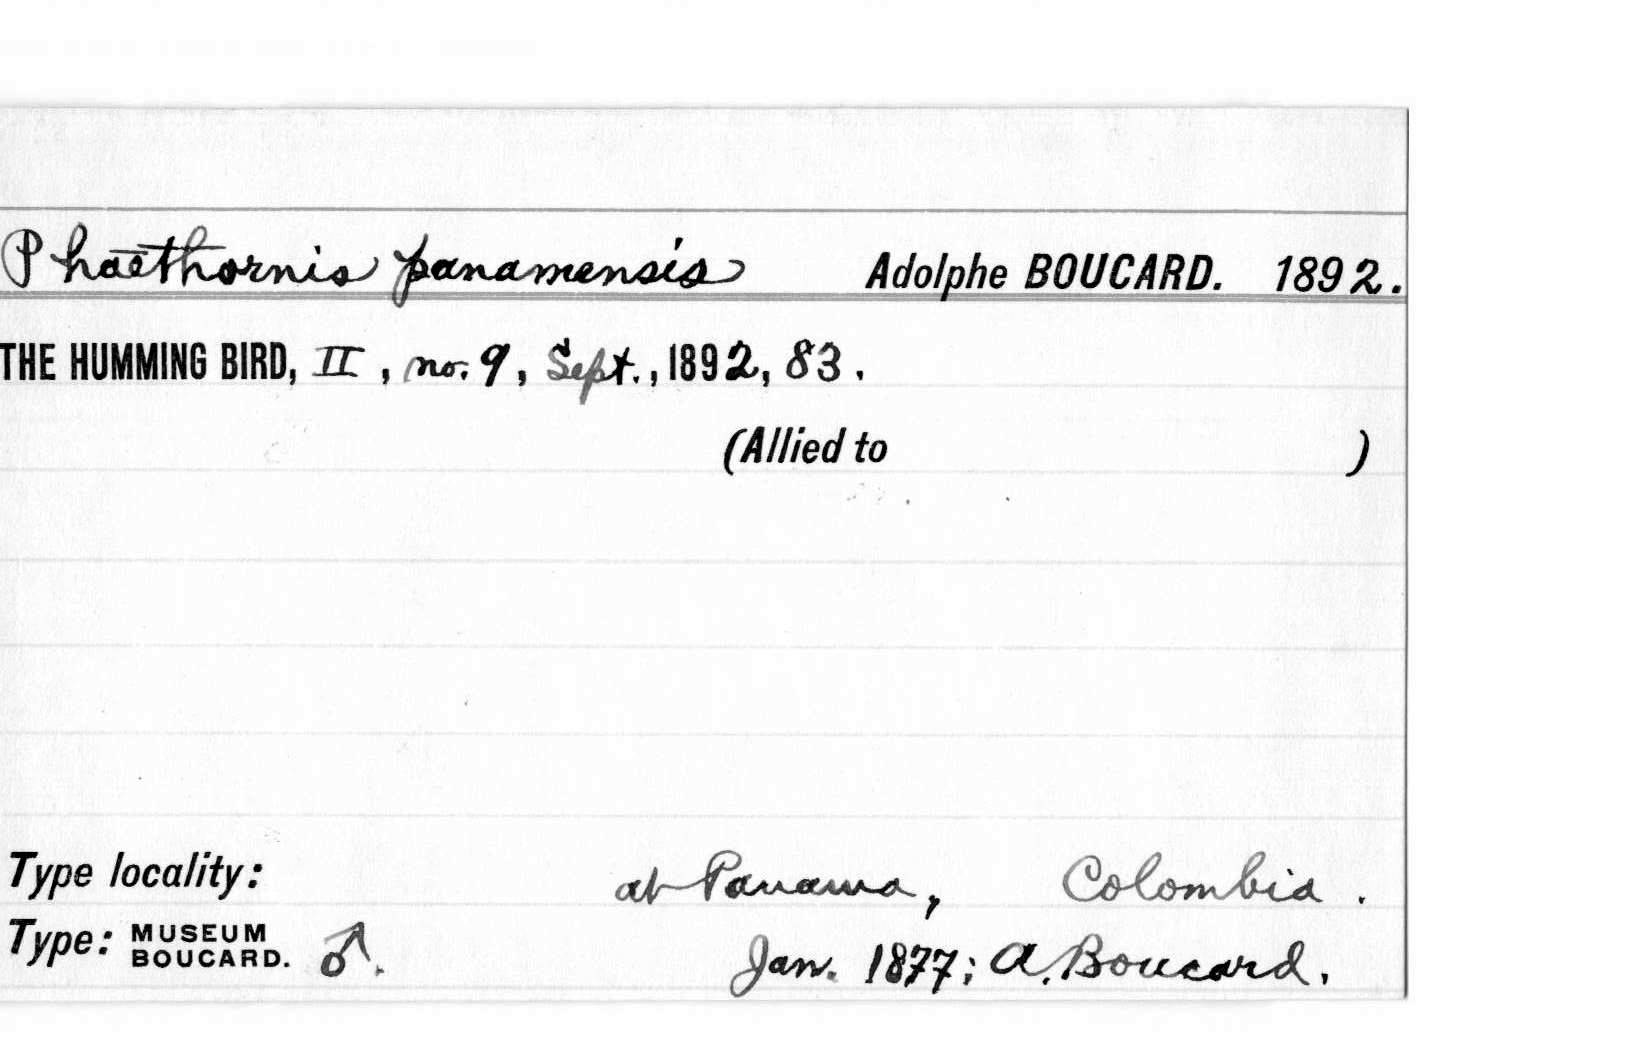 Phaethornis panamensis Adolphe BOUCARD. 1892.
THE HUMMING BIRD, II, no. 9, Sept., 1892, 83.
(Allied to )
Type locality: at Panama, Colombia.
Type: MUSEUM BOUCARD. ♂. Jan. 1877; A. Boucard.